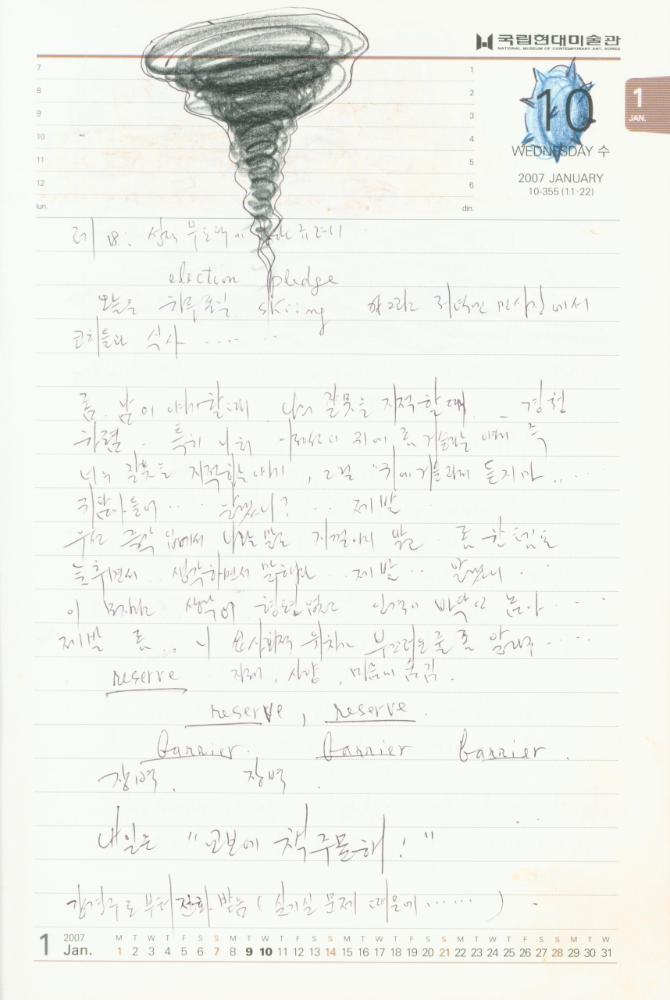 국립현대미술관
NATIONAL MUSEUM OF CONTEMPORARY ART, KOREA
7 1
8 2
9 3
10 4
11 5
12 6
lun. din.
1
JAN.
10
WEDNESDAY 수
2007 JANUARY
10-355 (11·22)
election pledge
오늘은 하루종일 skiing 하고 저녁엔 에서
코치들과 식사 ....
좀 남이 야기할 때 나의 잘못을 지적할 때 경청
하렴. 특히 너희 귀에 거슬리는 얘기 즉
너의 잘못을 지적하는 얘기, 그걸 "귀에 듣지마....
귀담아들어 ... 알았니? ... 제발
우선 즉각 입에서 나오는 말로 지껄이지 말고 좀 한 템포
늦추면서 생각하면서 말해라 제발 .. 알았니.
이 생각이 형편없고 인격이 바닥인 놈아...
제발 좀... 니 사회적 위치가 부끄러운 줄 좀 알아라....
reserve 자제, 사양, 마음에 숨김.
reserve, reserve.
barrier. barrier barrier.
장벽. 장벽.
내일은 "교보에 책주문해!"
로부터 전화 받음 (실기실 문제 때문에 ......)
1 2007 Jan.
M T W T F S S M T W T F S S M T W T F S S M T W T F S S M T W
1 2 3 4 5 6 7 8 9 10 11 12 13 14 15 16 17 18 19 20 21 22 23 24 25 26 27 28 29 30 31